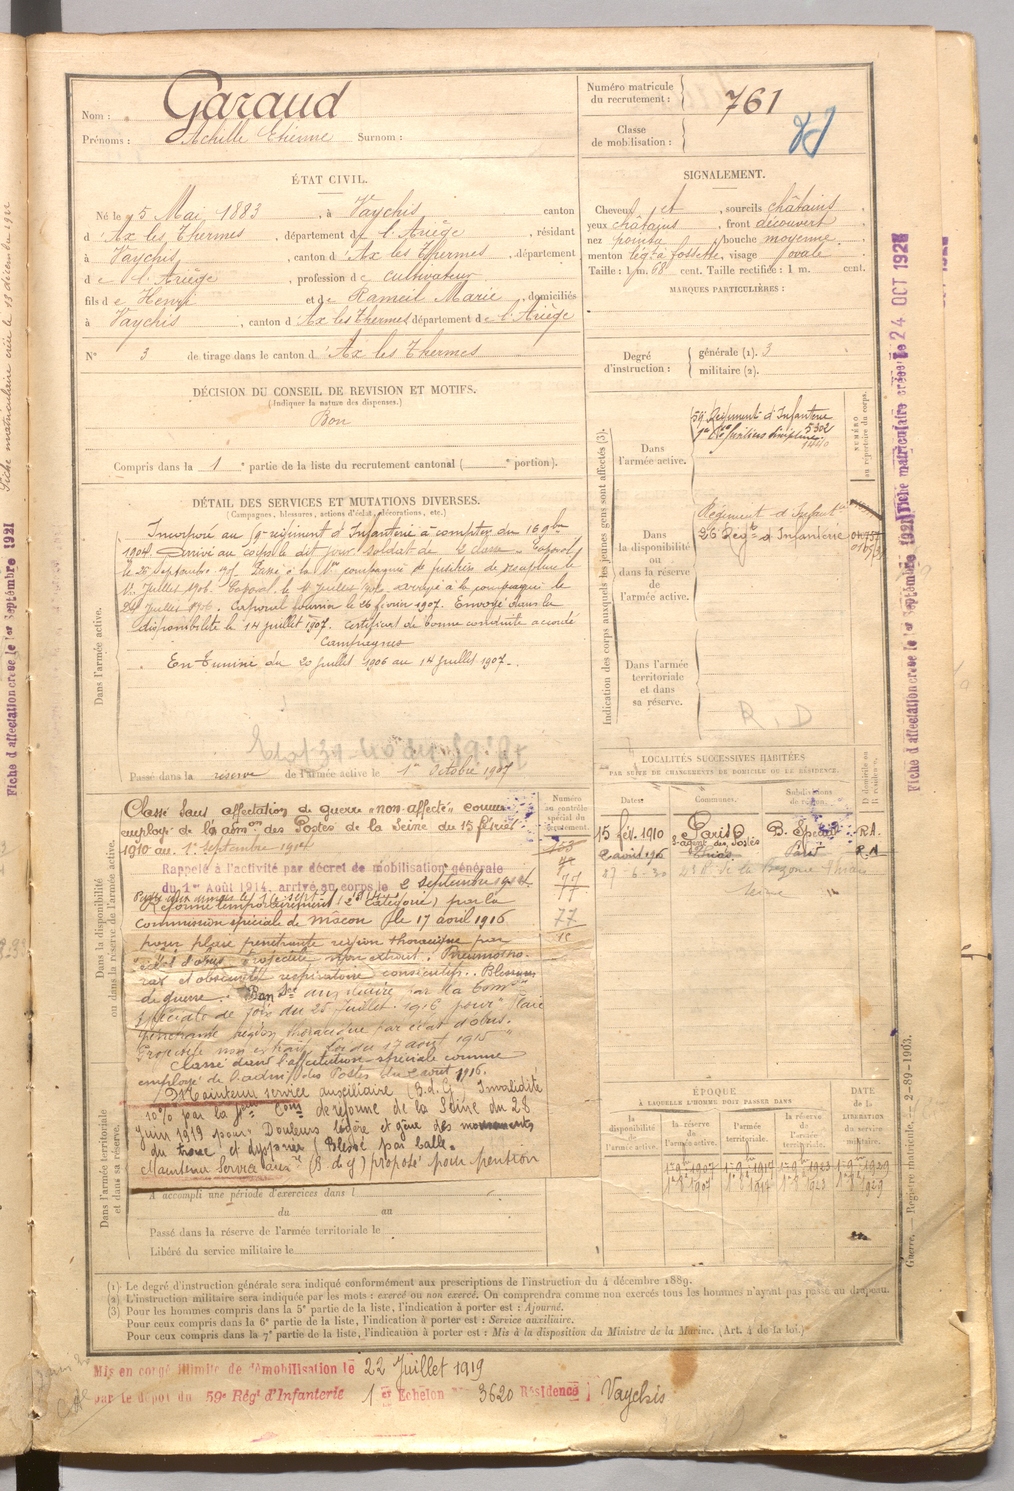 Nom : Garaud
Prénoms : Achille Etienne Surnom :
Numéro matricule du recrutement : 761
Classe de mobilisation :
ÉTAT CIVIL.
Né le 5 Mai 1883, à Vaychis canton
d'Ax les Thermes, département de l'Ariège, résidant
à Vaychis, canton d'Ax les Thermes, département
de l'Ariège, profession de cultivateur
fils de Henri et de Rameil Marie, domiciliés
à Vaychis, canton d'Ax les Thermes département de l'Ariège
N° 3 de tirage dans le canton d'Ax les Thermes
SIGNALEMENT.
Cheveux et, sourcils châtains
yeux châtains, front découvert
nez pointu, bouche moyenne
menton lég. à fossette, visage ovale
Taille : 1 m. 68 cent. Taille rectifiée : 1 m. cent.
MARQUES PARTICULIÈRES :
Degré d'instruction : générale (1). 3
militaire (2).
DÉCISION DU CONSEIL DE REVISION ET MOTIFS.
(Indiquer la nature des dispenses.)
Bon
Compris dans la 1e partie de la liste du recrutement cantonal ( e portion).
DÉTAIL DES SERVICES ET MUTATIONS DIVERSES.
(Campagnes, blessures, actions d'éclat, décorations, etc.)
Dans l'armée active.
Incorporé au 59e régiment d'Infanterie à compter du 16 9bre
1904. Arrivé au corps le dit jour, soldat de 2e classe. Caporal
le 25 Septembre 1905. Passé à la 1re compagnie de fusiliers de discipline le
Juillet 1906. Caporal le Juillet arrivé à la compagnie le
24 Juillet 1906. Caporal fourrier le 26 février 1907. Envoyé dans la
disponibilité le 14 juillet 1907. Certificat de bonne conduite accordé
Campagnes
En Tunisie du 20 juillet 1906 au 14 juillet 1907.
Passé dans la réserve de l'armée active le 1er Octobre 1907
Indication des corps auxquels les jeunes gens sont affectés (3).
Dans l'armée active.
59e Régiment d'Infanterie
1re Cie fusiliers discipline
NUMÉRO au répertoire du corps.
Dans la disponibilité ou dans la réserve de l'armée active.
Régiment d'Infanterie
Régt d'Infanterie
Dans l'armée territoriale et dans sa réserve.
R.D
LOCALITÉS SUCCESSIVES HABITÉES
PAR SUITE DE CHANGEMENTS DE DOMICILE OU DE RÉSIDENCE.
Dates. Communes. Subdivisions de région. D domicile ou R résidence.
15 fév. 1910 Paris B. Spécial R.A.
agent des postes
Paris R.A
27 6-30 de la
Seine
Dans la disponibilité ou dans la réserve de l'armée active.
Numéro au contrôle spécial du recrutement.
77
77
Classé sans affectation de guerre "non-affecté" comme
employé de l'adm. des Postes de la Seine du 15 février
1910 au 1er septembre 1914
Rappelé à l'activité par décret de mobilisation générale
du 1er Août 1914, arrivé au corps le 2 septembre 1914
Réformé temporairement (2e catégorie) par la
commission spéciale de Mâcon le 17 avril 1916
pour plaie pénétrante région thoracique par
éclat d'obus, projectile non extrait. Pneumotho-
rax et obscurité respiratoire consécutifs. Blessures
de guerre. Bon Sce auxiliaire par la Comon
spéciale de Foix du 25 Juillet 1916 pour "Plaie
pénétrante région thoracique par éclat d'obus.
Projectile non extrait. Loi du 17 août 1915"
Classé dans l'affectation spéciale comme
employé de l'admon des Postes du août 1916.
Dans l'armée territoriale et dans sa réserve.
Maintenu service auxiliaire (B.d.G.) Invalidité
10% par la Com. de réforme de la Seine du 28
Juin 1919 pour: Douleurs légère et gêne des mouvements
du tronc, et dyspnée (Blessé par balle.
Maintenu Service auxre (B d G) proposé pour pension
A accompli une période d'exercices dans l
du au
Passé dans la réserve de l'armée territoriale le
Libéré du service militaire le
ÉPOQUE
A LAQUELLE L'HOMME DOIT PASSER DANS
la disponibilité de l'armée active.
la réserve de l'armée active.
l'armée territoriale.
la réserve de l'armée territoriale.
DATE de la LIBÉRATION du service militaire.
1er 9bre 1907 1er 9bre 1917 1er 9bre 1923 1er 9bre 1929
1er 8bre 1907 1er 8bre 1917 1er 8bre 1923 1er 8bre 1929
(1) Le degré d'instruction générale sera indiqué conformément aux prescriptions de l'instruction du 4 décembre 1889.
(2) L'instruction militaire sera indiquée par les mots : exercé ou non exercé. On comprendra comme non exercés tous les hommes n'ayant pas passé au drapeau.
(3) Pour les hommes compris dans la 5e partie de la liste, l'indication à porter est : Ajourné.
Pour ceux compris dans la 6e partie de la liste, l'indication à porter est : Service auxiliaire.
Pour ceux compris dans la 7e partie de la liste, l'indication à porter est : Mis à la disposition du Ministre de la Marine. (Art. 4 de la loi.)
Mis en congé illimité de démobilisation le 22 Juillet 1919
par le dépôt du 59e Régt d'Infanterie 1er Echelon 3620 Résidence Vaychis
Guerre. — Registre matricule. — 2-89-1903.
Fiche d'affectation créée le 1er Septembre 1921
Fiche matriculaire créée le 24 OCT 192
Fiche d'affectation créée le 1er Septembre 1921